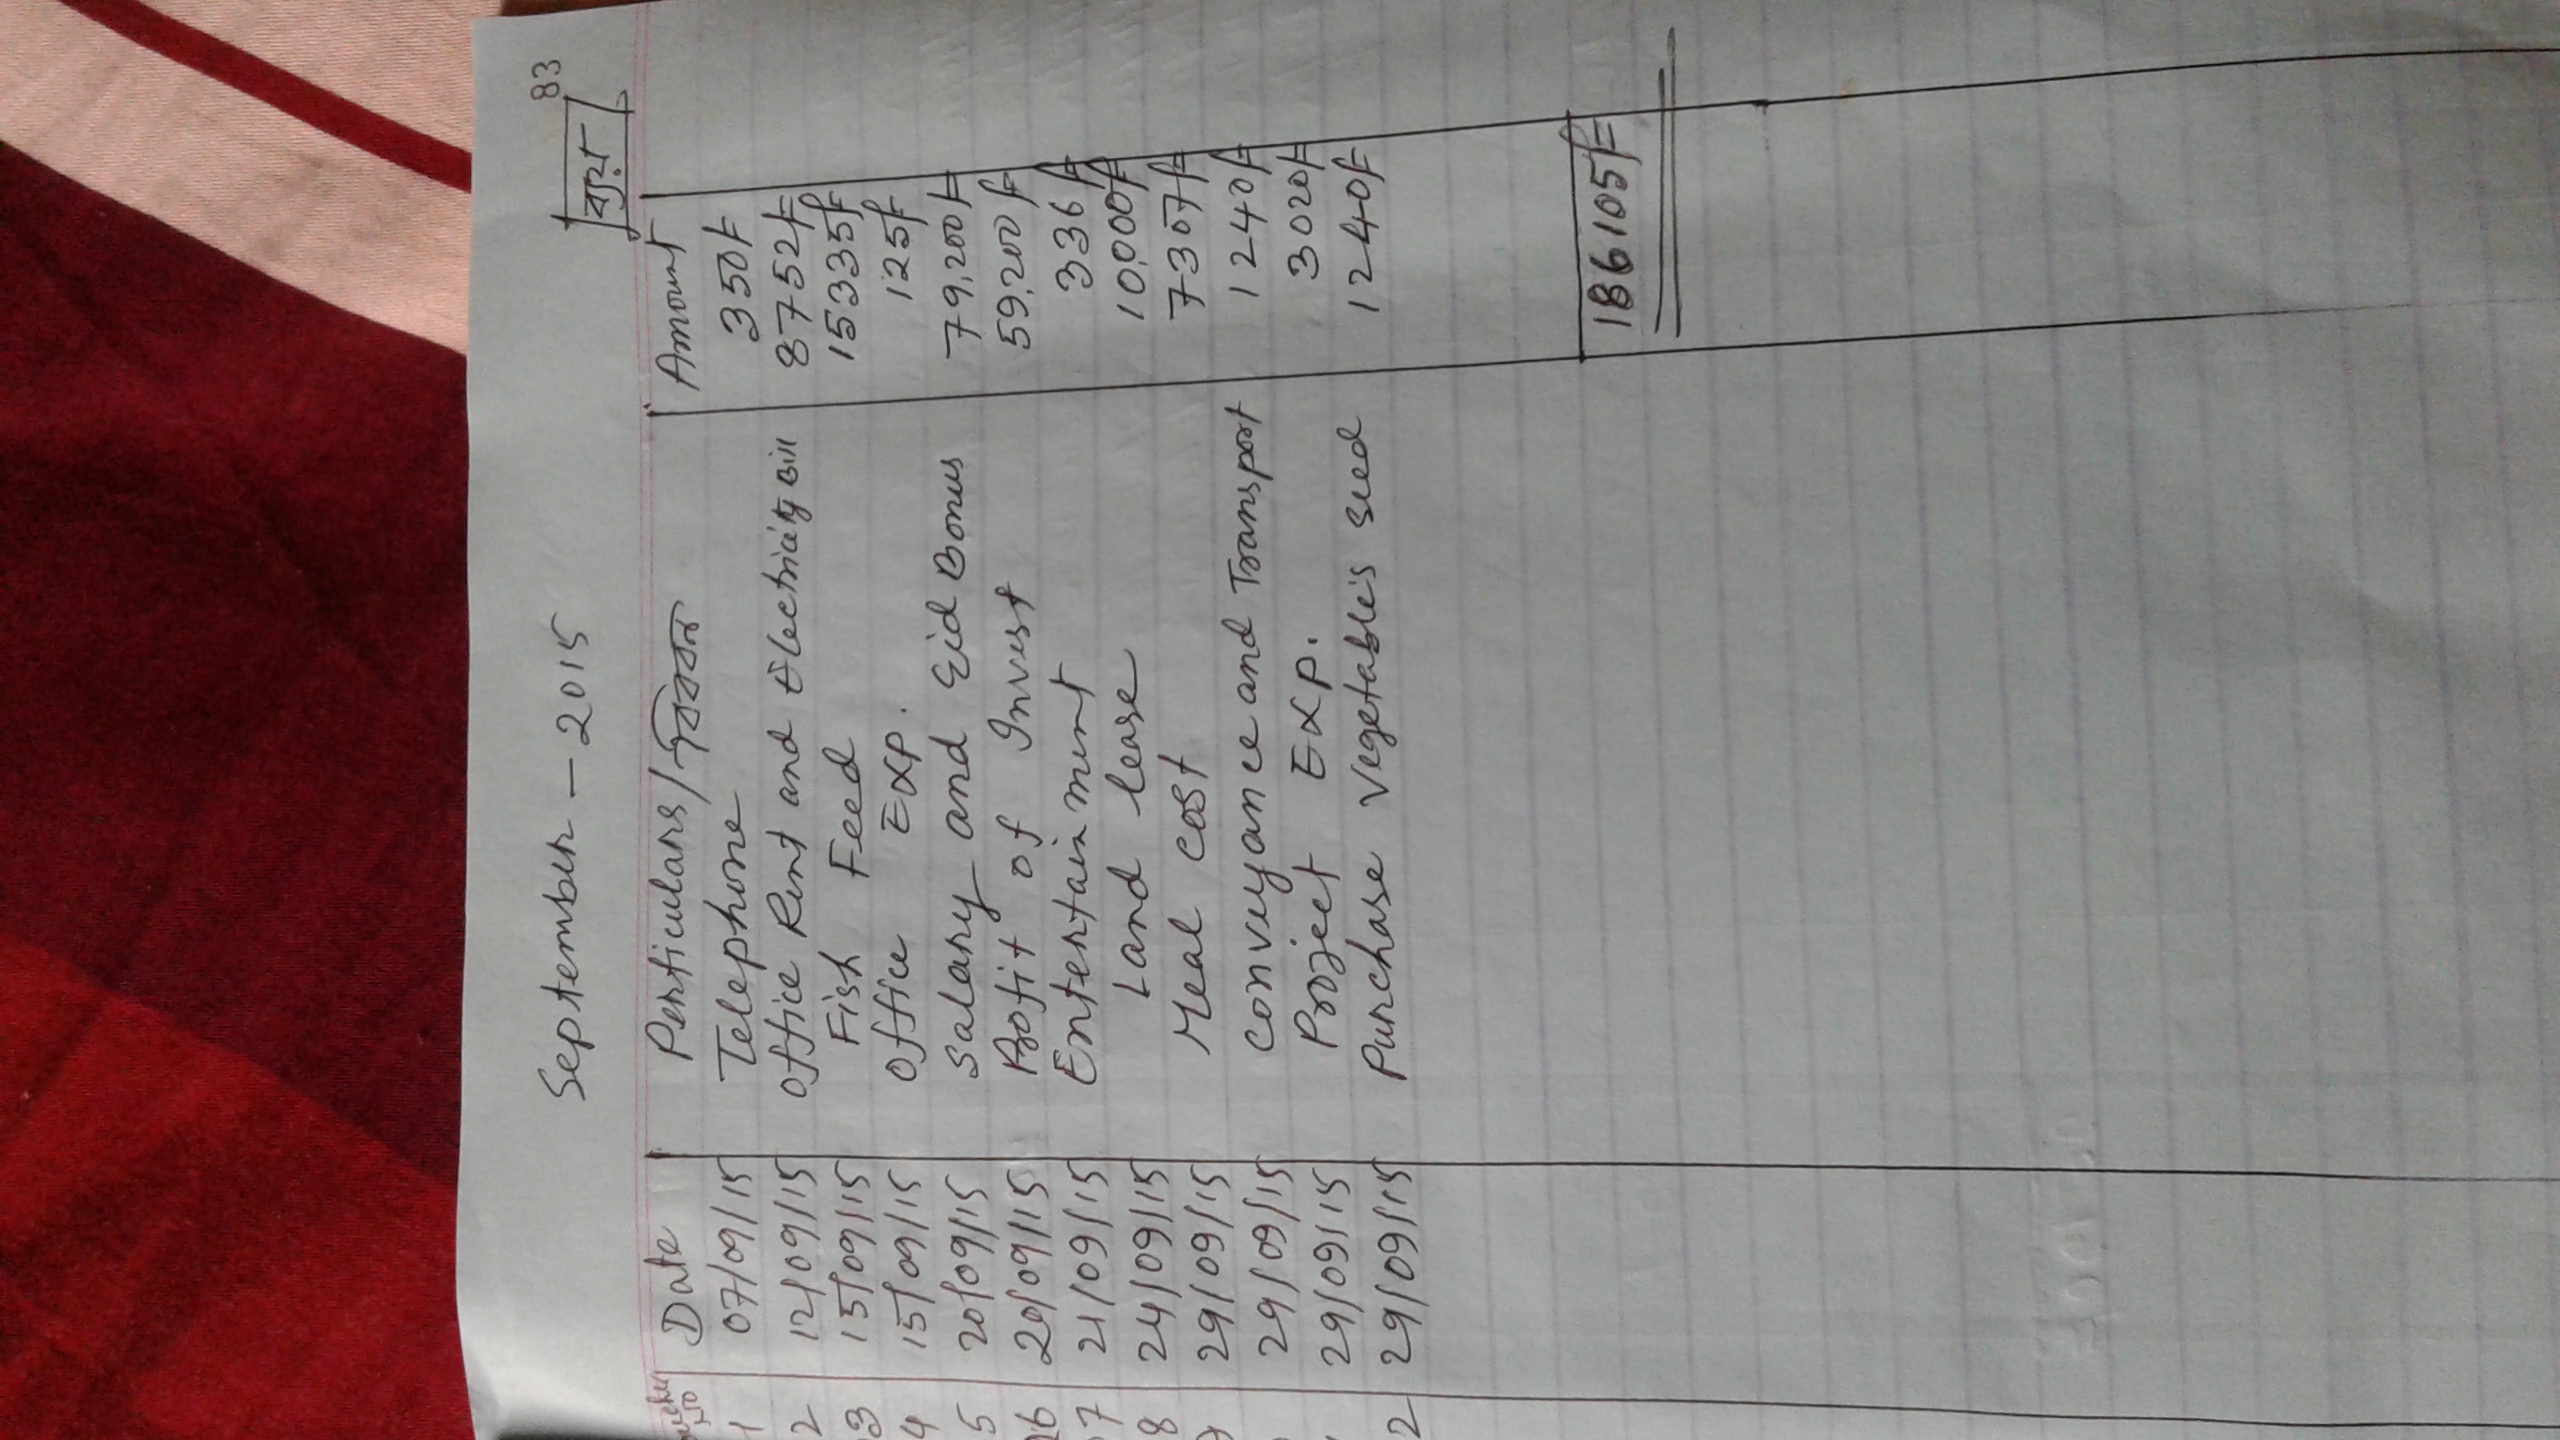 83
September - 2015
ব্যয়
Date Perticulars/বিবরন Amount
No
1 07/09/15 Telephone 350/=
2 12/09/15 Office Rent and Electricity Bill 8752/=
3 15/09/15 Fish Feed 15335/=
4 15/09/15 Office Exp. 125/=
5 20/09/15 Salary and Eid Bonus 79,200/=
6 20/09/15 Profit of Invest 59,200/=
7 21/09/15 Entertainment 336/=
8 24/09/15 Land lease 10,000/=
29/09/15 Meal cost 7307/=
29/09/15 Conveyance and Transport 1240/=
29/09/15 Project Exp. 3020/=
2 29/09/15 Purchase Vegetable's seed 1240/=
186105/=